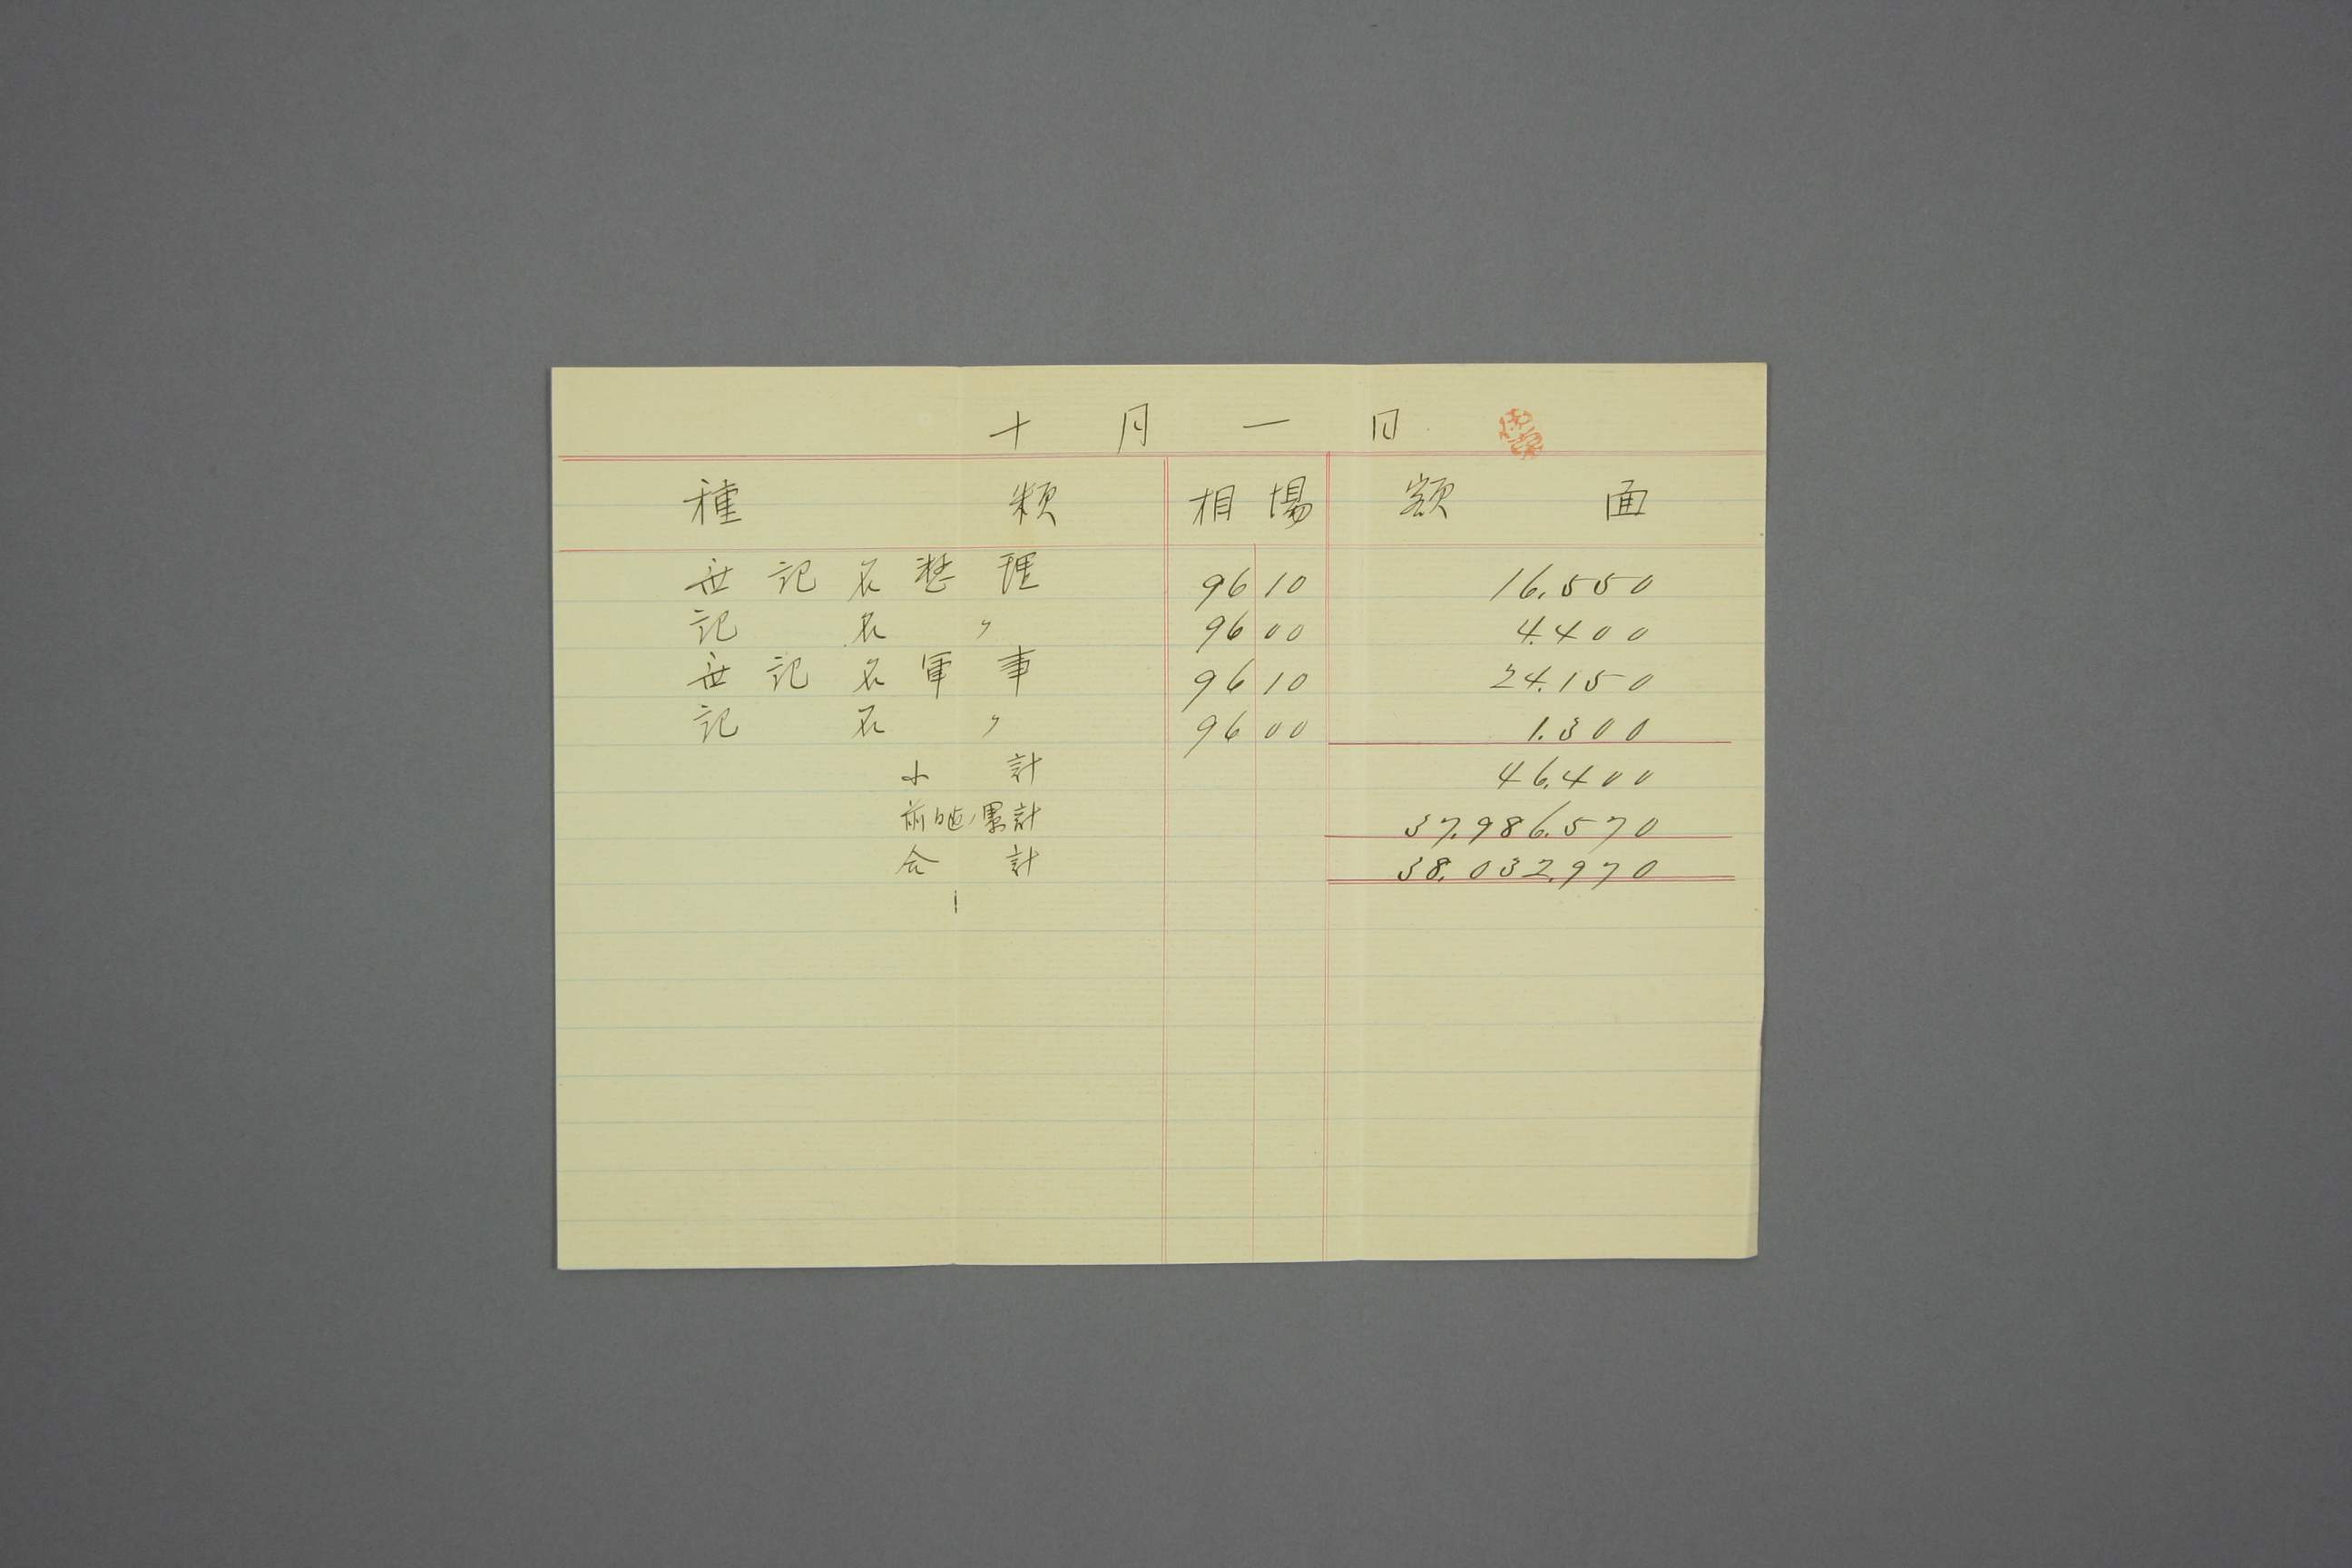 十月一日
種類 相場 額面
無記名整理 96 10 16.550
記名〃 96 00 4.400
無記名軍事 96 10 24.150
記名〃 96 00 1.300
小計 46.400
前日迄ノ累計 37.986.570
合計 38.032.970